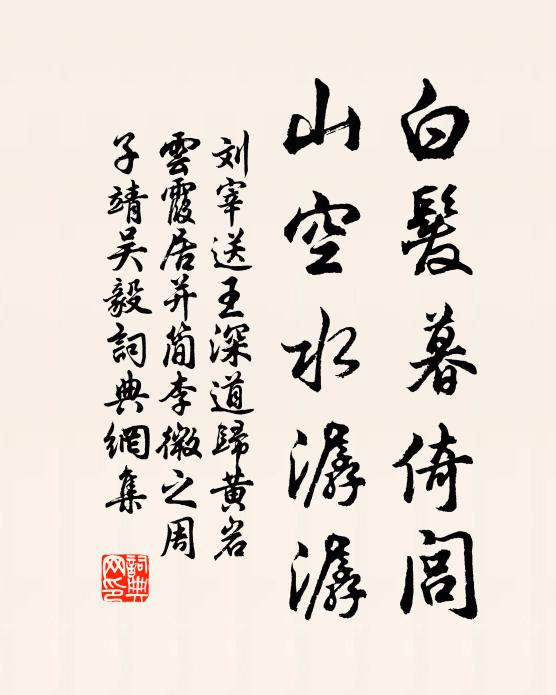 白髮暮倚閭
山空水潺潺
刘宰送王深道歸黄岩
雲霞居并简李微之周
子靖吴毅詞典網集
詞典
网印